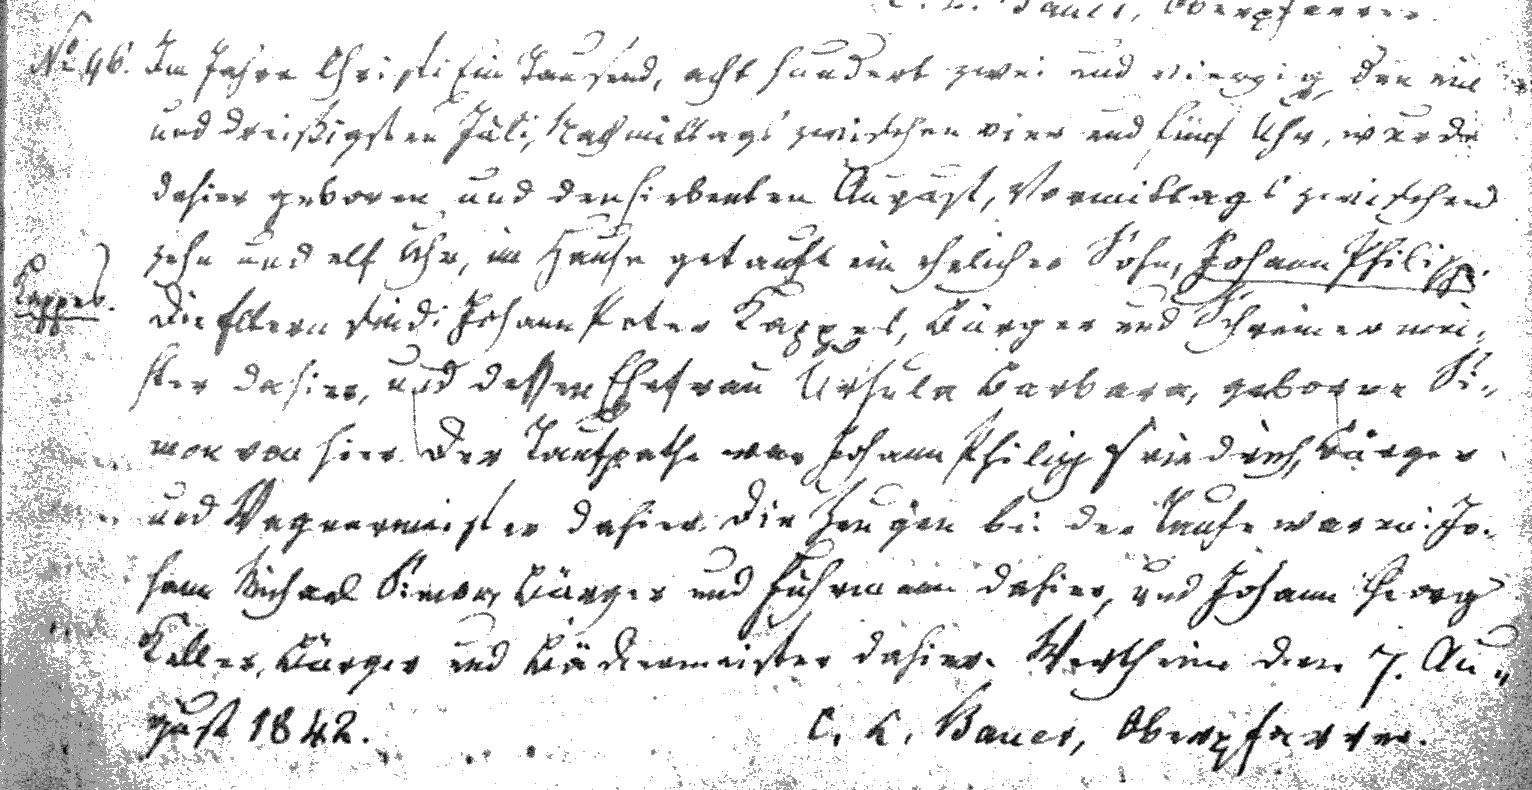 C. L. Bauer, Oberpfarrer.
No. 96. Im Jahre Christi Ein Tausend, acht hundert zwei und vierzig, den ein
und dreißigsten Juli, Nachmittags zwischen vier und fünf Uhr, wurde
dahier geboren und den siebenten August, Vormittags zwischen
zehn und elf Uhr, im Hause getauft ein ehelicher Sohn, Johann Philipp.
Kappes.
Die Eltern sind: Johann Peter Kappes, Bürger und Schreinermei-
ster dahier, und dessen Ehefrau Ursula Barbara, geborne Si-
mon von hier. Der Taufpathe war Johann Philipp Friedrich, Bürger
und Wagnermeister dahier. Die Zeugen bei der Taufe waren: Jo-
hann Michael Simon, Bürger und Fuhrmann dahier, und Johann Georg
Keller, Bürger und Bäckermeister dahier. Wertheim den 7. Au-
gust 1842.
C. L. Bauer, Oberpfarrer.